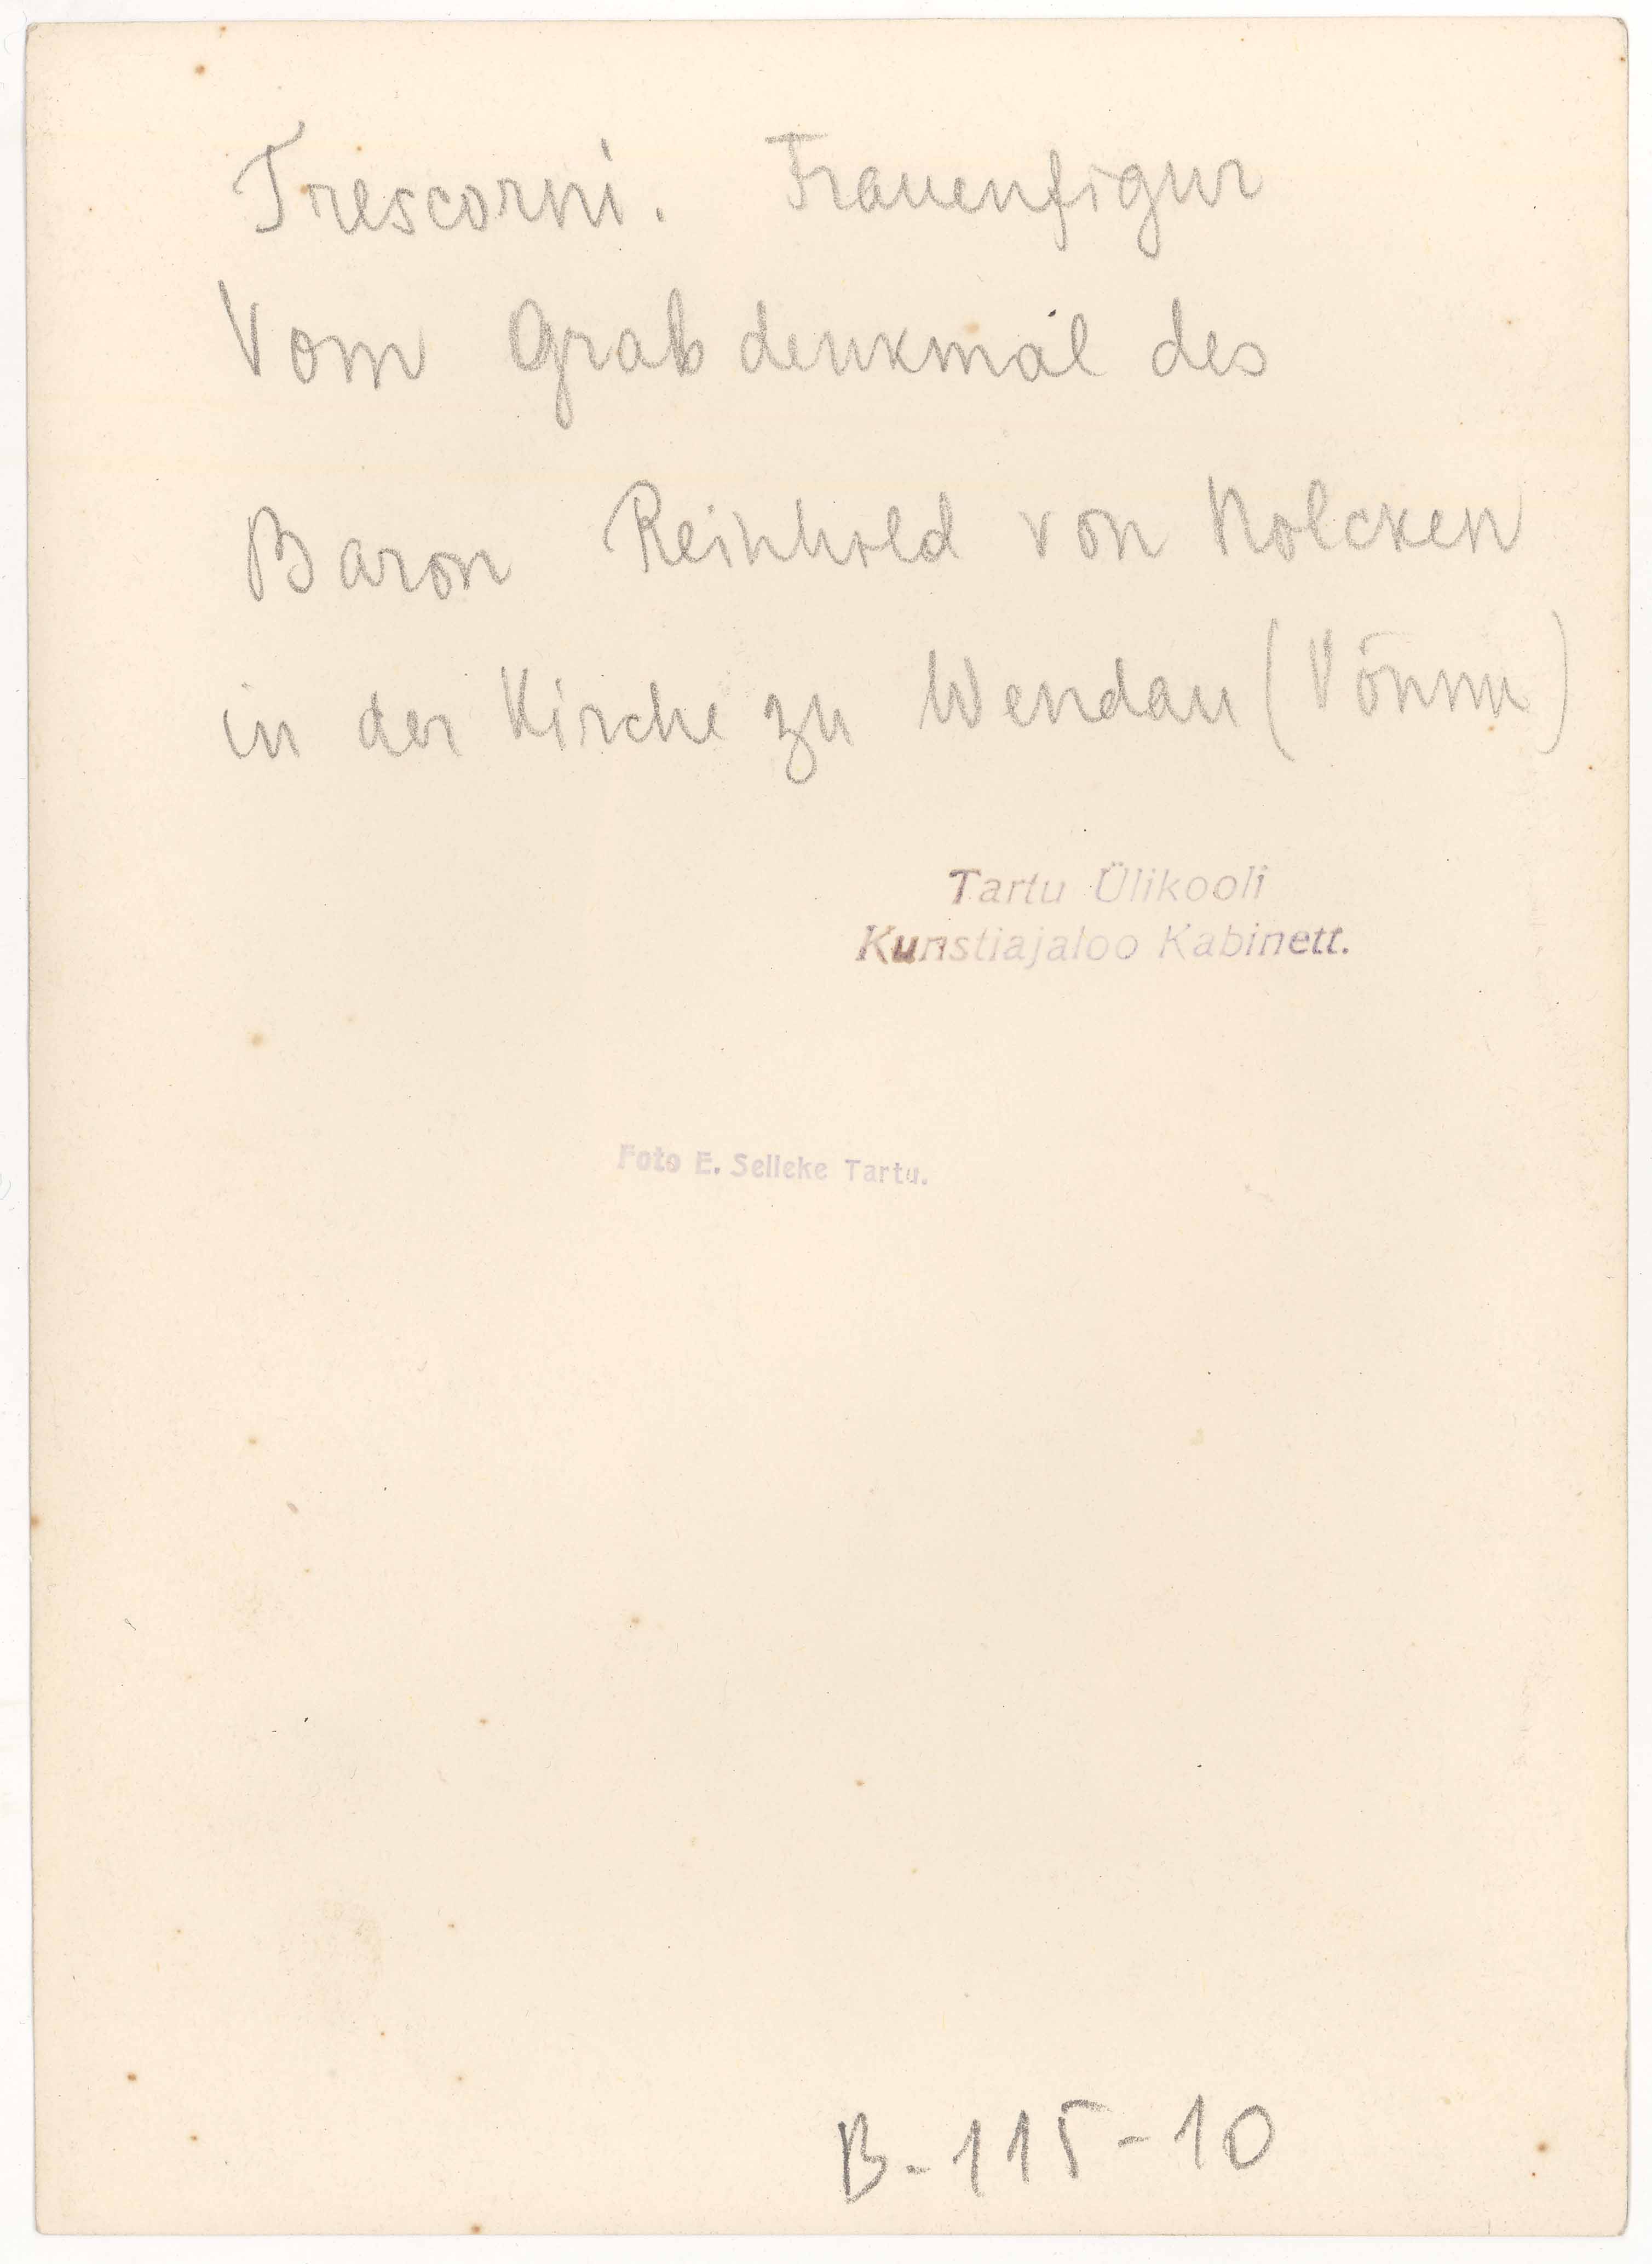 Trescorni. Frauenfigur
Vom Grabdenkmal des
Baron Reinhold von Nolcken
in der Kirche zu Wendau (Võnnu)
Tartu Ülikooli
Kunstiajaloo Kabinett.
Foto E. Selleke Tartu.
B-115-10